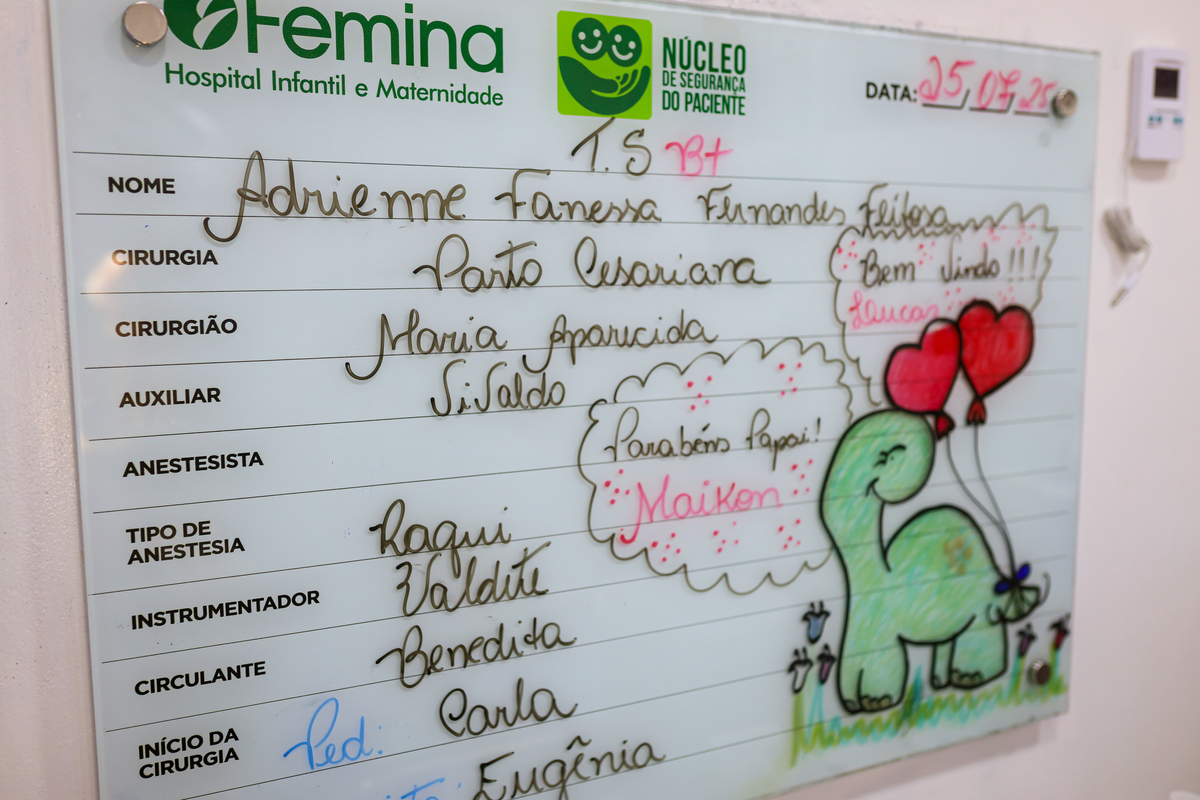 Femina
Hospital Infantil e Maternidade
NÚCLEO
DE SEGURANÇA
DO PACIENTE
DATA: 25/07/25
T.S B+
NOME Adrienne Fanessa Fernandes Feitosa
CIRURGIA Parto Cesariana
Bem Vindo!!!
Laucas
CIRURGIÃO Maria Aparecida
AUXILIAR Sivaldo
Parabéns Papai!
Maikon
ANESTESISTA
TIPO DE
ANESTESIA Raqui
INSTRUMENTADOR Valdite
CIRCULANTE Benedita
INÍCIO DA
CIRURGIA Ped: Carla
Eugênia